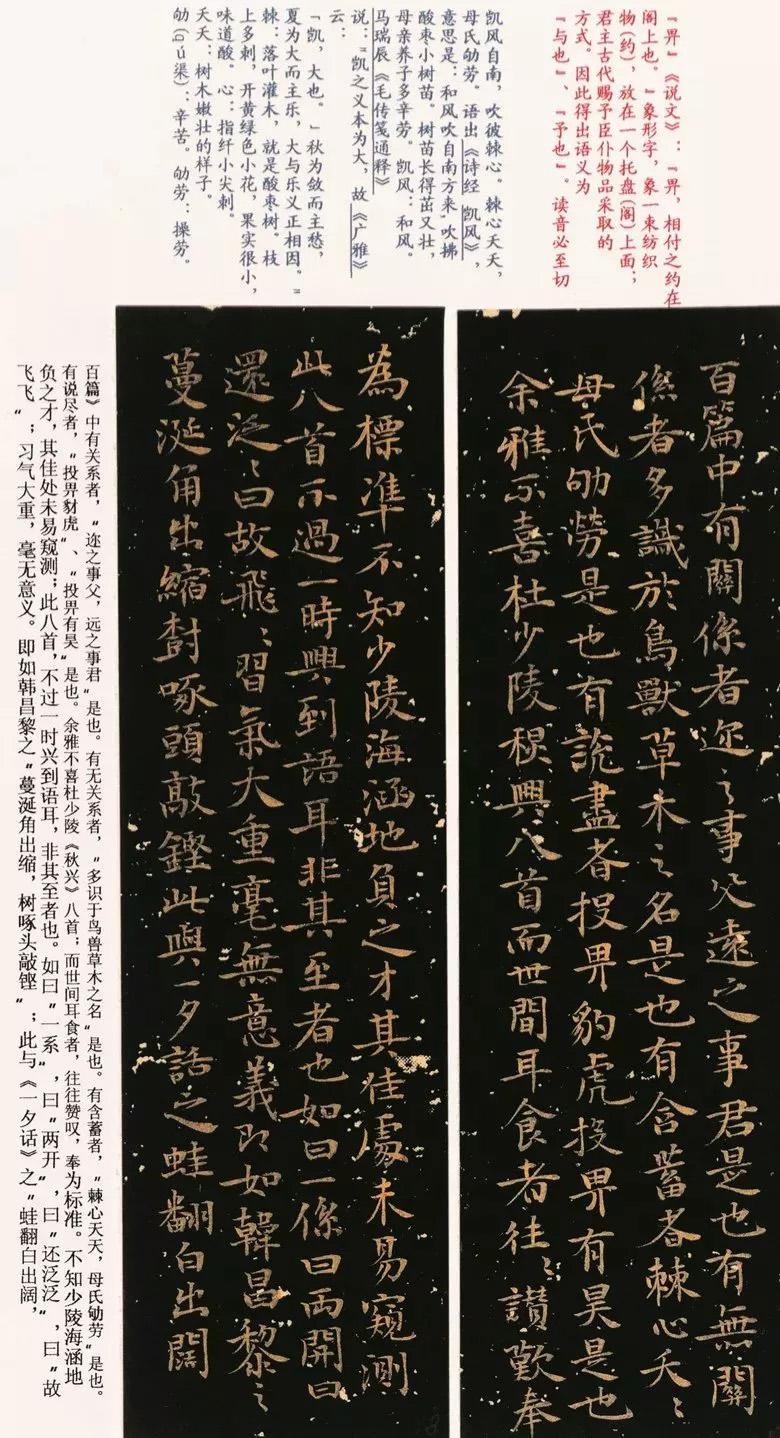 『畀』《说文》："畀，相付之约在
阁上也。"象形字，象一束纺织
物(约)，放在一个托盘(阁)上面；
君主古代赐予臣仆物品采取的
方式。因此得出语义为
『与也』、『予也』。读音必至切
凯风自南，吹彼棘心。棘心夭夭，
母氏劬劳。语出《诗经 凯风》，
意思是：和风吹自南方来，吹拂
酸枣小树苗。树苗长得茁又壮，
母亲养子多辛劳。凯风：和风。
马瑞辰《毛传笺通释》
说："凯之义本为大，故《广雅》
云：
「凯，大也。」秋为敛而主愁，
夏为大而主乐，大与乐义正相因。"
棘：落叶灌木，就是酸枣树。枝
上多刺，开黄绿色小花，果实很小，
味道酸。心：指纤小尖刺。
夭夭：树木嫩壮的样子。
劬(qú渠)：辛苦。劬劳：操劳。
百篇中有關係者迩之事父遠之事君是也有無關
係者多識於鳥獸草木之名是也有含蓄者棘心夭〻
母氏劬勞是也有說盡者投畀豹虎投畀有昊是也
余雅不喜杜少陵秋興八首而世間耳食者往〻讃歎奉
為標準不知少陵海涵地負之才其佳處未易窺測
此八首不過一時興到語耳非其至者也如曰一係曰兩開曰
還泛〻曰故飛〻習氣大重毫無意義即如韓昌黎之
蔓涎角出縮樹啄頭敲鏗此與一夕話之蛙翻白出闊
百篇》中有关系者，"迩之事父，远之事君"是也。有无关系者，"多识于鸟兽草木之名"是也。有含蓄者，"棘心夭夭，母氏劬劳"是也。
有说尽者，"投畀豺虎"、"投畀有昊"是也。余雅不喜杜少陵《秋兴》八首；而世间耳食者，往往赞叹，奉为标准。不知少陵海涵地
负之才，其佳处未易窥测；此八首，不过一时兴到语耳，非其至者也。如曰"一系"，曰"两开"，曰"还泛泛"，曰"故
飞飞"；习气大重，毫无意义。即如韩昌黎之"蔓涎角出缩，树啄头敲铿"；此与《一夕话》之"蛙翻白出阔，